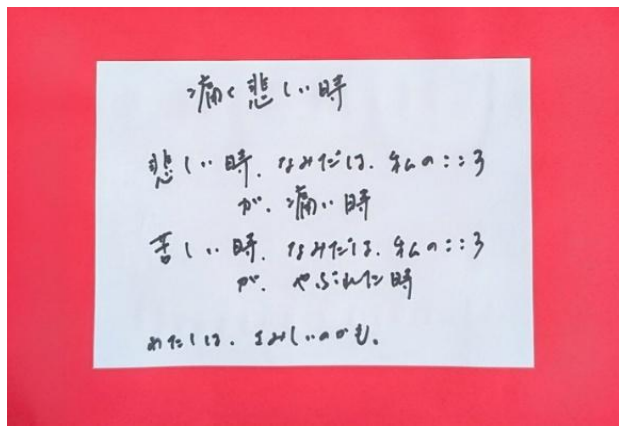 痛く悲しい時
悲しい時、なみだは、私のこころ
が、痛い時
苦しい時、なみだは、私のこころ
が、やぶれた時
わたしは、さみしいのかも。